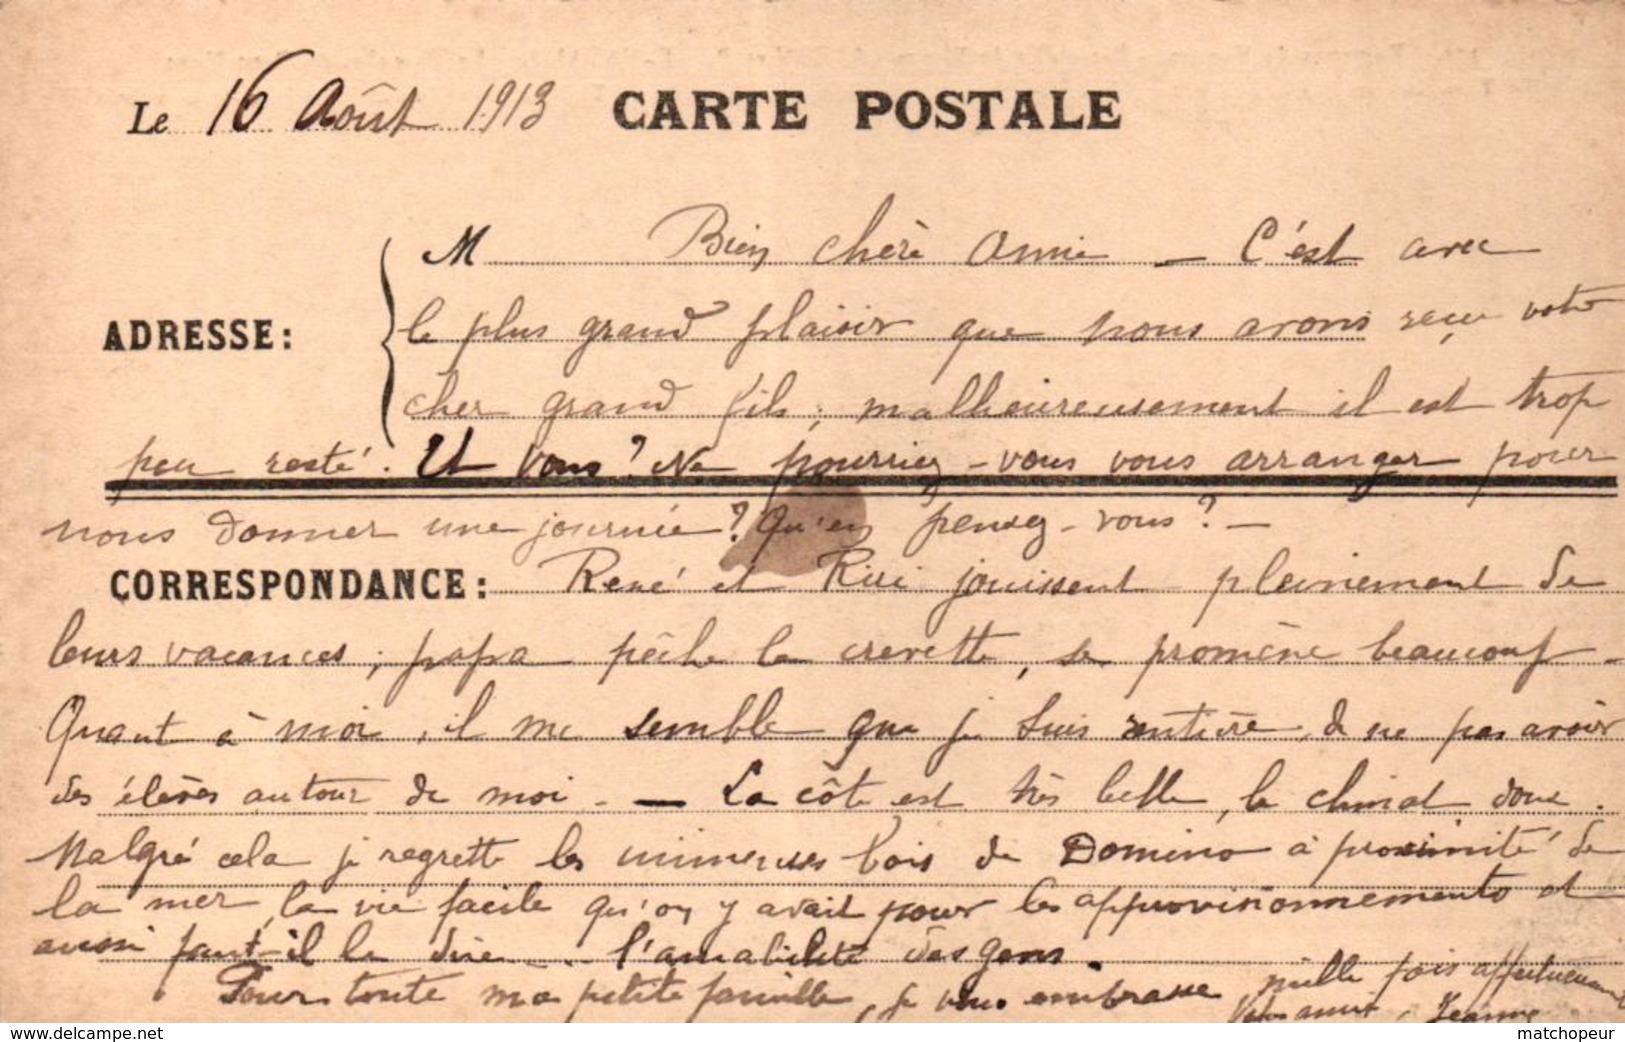 Le 16 Août 1913 CARTE POSTALE
M Bien chère Amie — C'est avec
le plus grand plaisir que nous avons reçu votre
ADRESSE:
cher grand fils, malheureusement il est trop
peu resté. Et vous? Ne pourriez-vous vous arranger pour
nous donner une journée? Qu'en pensez-vous? —
CORRESPONDANCE: René et Riri jouissent pleinement de
leurs vacances; papa pêche la crevette, se promène beaucoup —
Quant à moi, il me semble que je suis rentière, de ne pas avoir
des élèves autour de moi. — La côte est très belle, le climat doux.
Malgré cela je regrette les immenses bois de Domino à proximité de
la mer, la vie facile qu'on y avait pour les approvisionnements et
aussi faut-il le dire... l'amabilité des gens.
Pour toute ma petite famille, je vous embrasse mille fois affectueusement
Votre amie, Jeanne
matchopeur